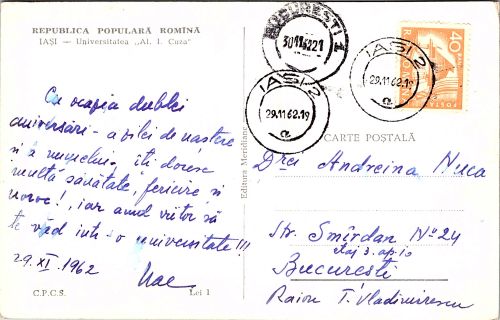 REPUBLICA POPULARĂ ROMÎNĂ
IAȘI — Universitatea „Al. I. Cuza”
Cu ocazia dublei
aniversări - a zilei de naștere
și a numelui, îți doresc
multă sănătate, fericire și
noroc!, iar anul viitor să
te văd într-o universitate!!!
29.XI.1962
Nae
C.P.C.S.
Lei 1
Editura Meridiane
BUCUREȘTI 1
30.11.62 21
IAȘI 2
29.11.62.19
a
IAȘI 2
29.11.62.19
a
40 BANI
POSTA
R.P. ROMINA
CARTE POȘTALĂ
Drei Andreina Nuca
Str. Smîrdan Nº 24
etaj 3. ap. 10
București
Raion T. Vladimirescu